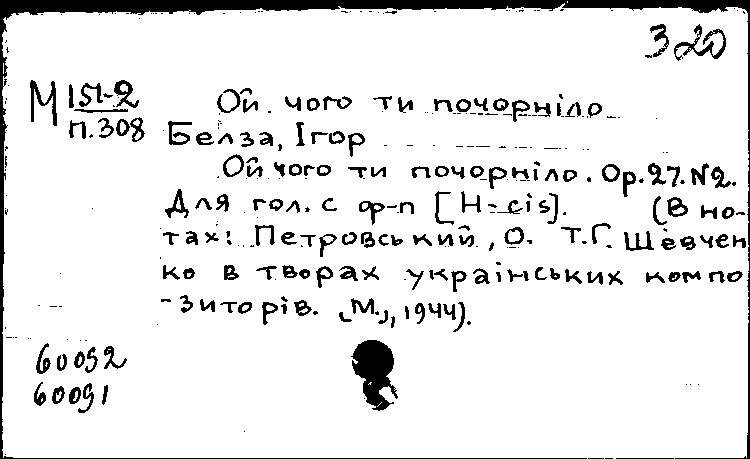 320
М 151-2
п.308
Ой чого ти почорніло
Белза, Ігор
Ой чого ти почорніло. Ор.27.N2.
Для гол. с ф-п [H-cis]. (В но-
тах: Петровський, О. Т.Г. Шевчен
ко в творах українських компо
-зиторів. [М.], 1944).
60092
60091